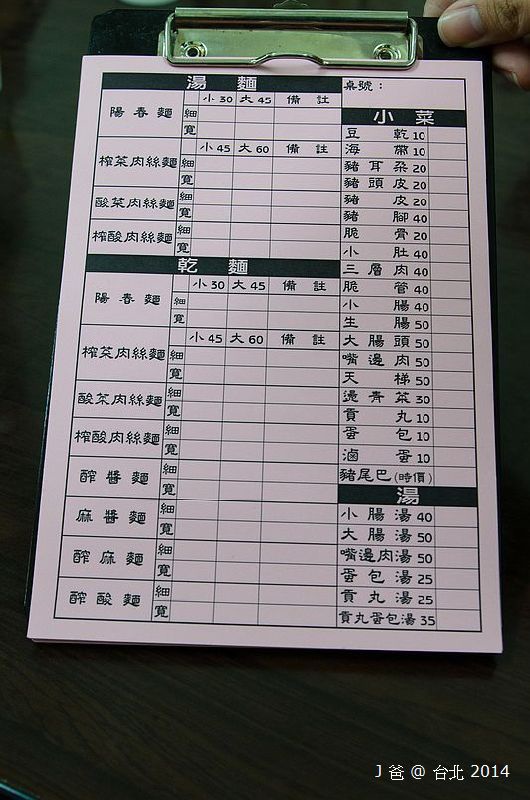 湯 麵
小30 大45 備 註
陽 春 麵
細
寬
小45 大60 備 註
榨菜肉絲麵
細
寬
酸菜肉絲麵
細
寬
榨酸肉絲麵
細
寬
乾 麵
小30 大45 備 註
陽 春 麵
細
寬
小45 大60 備 註
榨菜肉絲麵
細
寬
酸菜肉絲麵
細
寬
榨酸肉絲麵
細
寬
酢 醬 麵
細
寬
麻 醬 麵
細
寬
酢 麻 麵
細
寬
酢 酸 麵
細
寬
桌號：
小 菜
豆 乾 10
海 帶 10
豬 耳 朶 20
豬 頭 皮 20
豬 皮 20
豬 腳 40
脆 骨 20
小 肚 40
三 層 肉 40
脆 管 40
小 腸 40
生 腸 50
大 腸 頭 50
嘴 邊 肉 50
天 梯 50
燙 青 菜 30
貢 丸 10
蛋 包 10
滷 蛋 10
豬尾巴(時價)
湯
小 腸 湯 40
大 腸 湯 50
嘴邊肉湯 50
蛋 包 湯 25
貢 丸 湯 25
貢丸蛋包湯 35
J 爸 @ 台北 2014